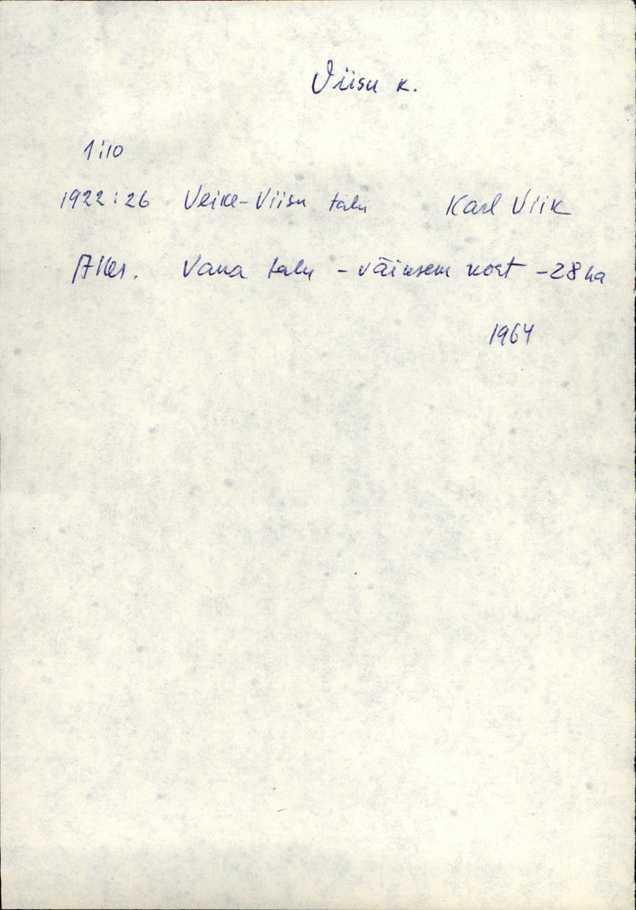 Viisu k.
1:10
1922:26 Veike-Viisu talu Karl Viik
Vana talu - väiksem koht - 28 ha
1964